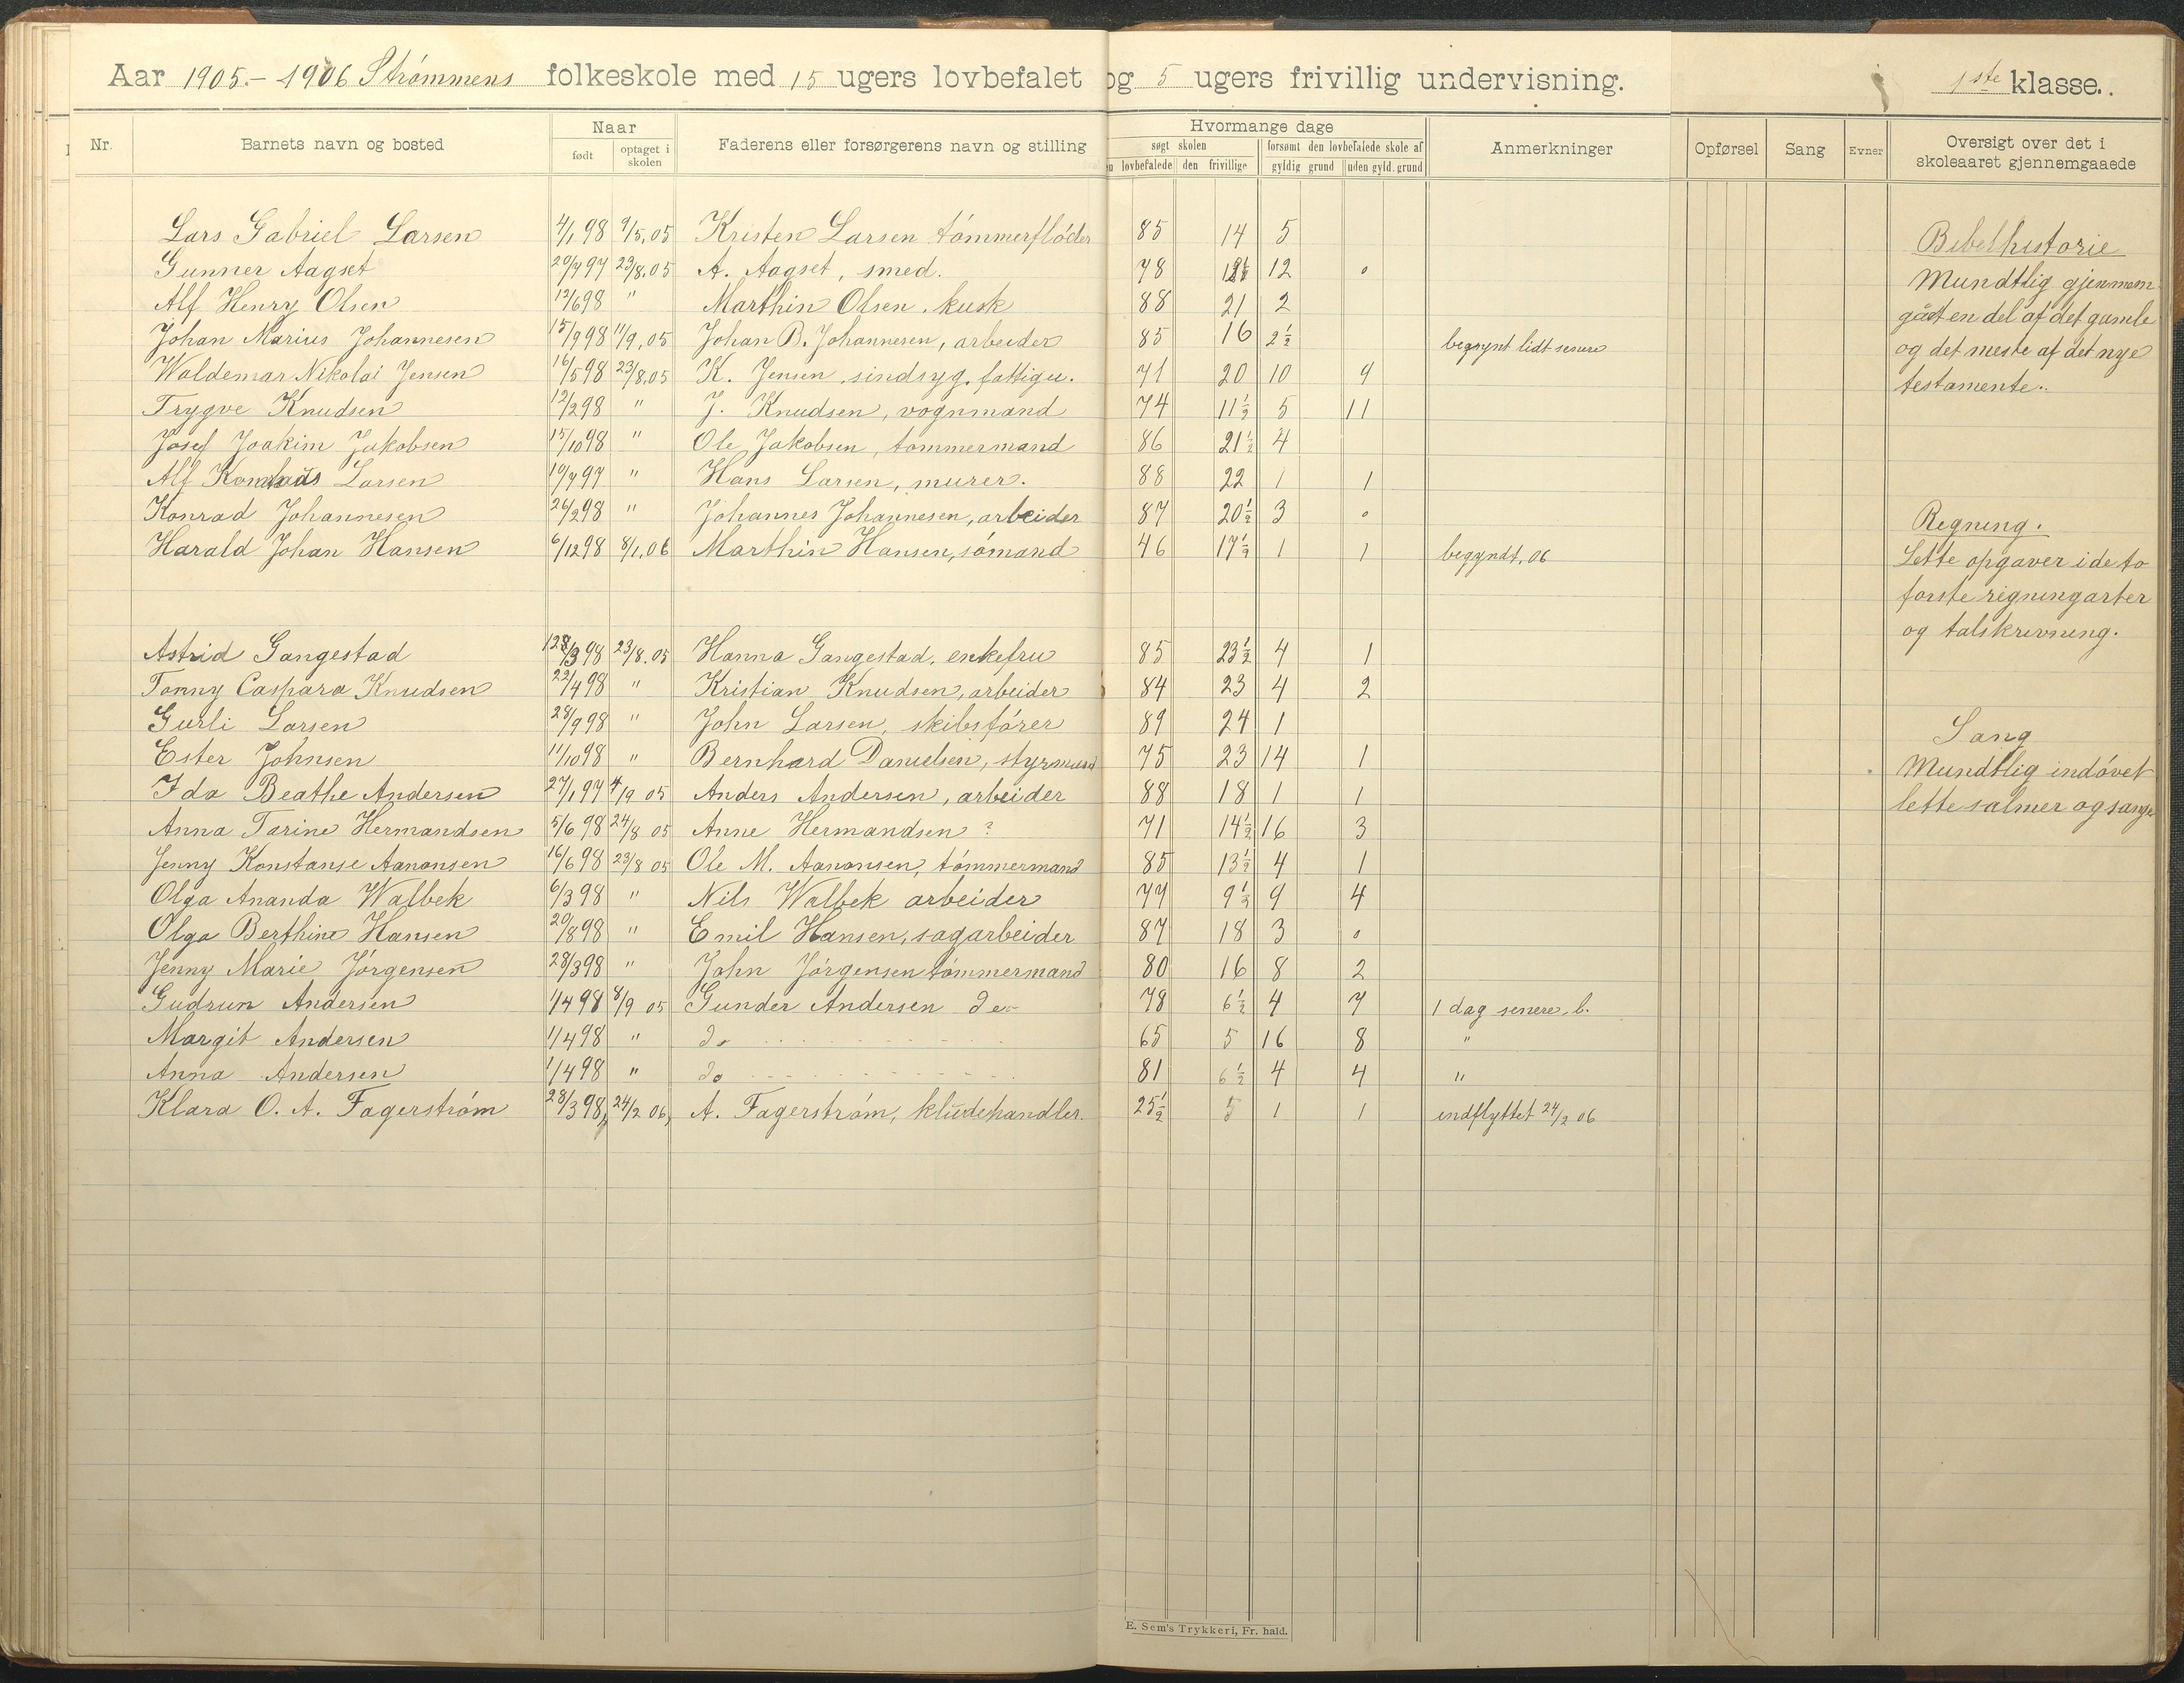 Aar 1905.- 1906 Strømmens folkeskole med 15 ugers lovbefalet og 5 ugers frivillig undervisning. 1ste klasse.
Nr. Barnets navn og bosted Naar født optaget i skolen Faderens eller forsørgerens navn og stilling Hvormange dage søgt skolen lovbefalede den frivillige forsømt den lovbefalede skole af gyldig grund uden gyld. grund Anmerkninger Opførsel Sang Evner Oversigt over det i skoleaaret gjennemgaaede
Lars Gabriel Larsen 4/1 98 9/5.05 Kristen Larsen tømmerfløder 85 14 5
Gunner Aagset 20/7 97 23/8.05 A. Aagset, smed. 78 12 0
Alf Henry Olsen 12/6 98 " Marthin Olsen. kusk 88 21 2
Johan Marius Johannesen 15/9 98 11/9.05 Johan B. Johannesen, arbeider 85 16 2½ begynt lidt senere
Waldemar Nikolai Jensen 16/5 98 23/8.05 K. Jensen sindsyg. fattigu. 71 20 10 9
Trygve Knudsen 12/2 98 " J. Knudsen, vognmand 74 11½ 5 11
Josef Joakim Jakobsen 15/10 98 " Ole Jakobsen, tømmermand 86 21½ 4
Alf Larsen 10/7 97 " Hans Larsen, murer. 88 22 1 1
Konrad Johannesen 26/2 98 " Johannes Johannesen, arbeider 87 20½ 3 0
Harald Johan Hansen 6/12 98 8/1.06 Marthin Hansen, sømand 46 17½ 1 1 begyndt. 06
Astrid Gangestad 98 23/8.05 Hanna Gangestad, enkefru 85 23½ 4 1
Tonny Caspara Knudsen 22/4 98 " Kristian Knudsen, arbeider 84 23 4 2
Gurli Larsen 28/9 98 " John Larsen, skibsfører 89 24 1
Ester Johnsen 11/10 98 " Bernhard Danielsen, styrmand 75 23 14 1
Ida Beathe Andersen 27/1 97 4/9 05 Anders Andersen, arbeider 88 18 1 1
Anna Tarine Hermandsen 5/6 98 24/8 05 Anne Hermandsen ? 71 14½ 16 3
Jenny Konstanse Aanonsen 16/6 98 23/8 05 Ole M. Aanonsen, tømmermand 85 13½ 4 1
Olga Ananda Walbek 6/3 98 " Nils Walbek arbeider 77 9½ 9 4
Olga Berthine Hansen 20/8 98 " Emil Hansen, sagarbeider 87 18 3 0
Jenny Marie Jørgensen 28/3 98 " John Jørgensen tømmermand 80 16 8 2
Gudrun Andersen 1/4 98 8/9 05 Gunder Andersen do 78 6½ 4 7 1 dag senere b.
Margit Andersen 1/4 98 " do 65 5 16 8 "
Anna Andersen 1/4 98 " do 81 6½ 4 4 "
Klara O. A. Fagerstrøm 28/3 98, 24/2 06, A. Fagerstrøm, kludehandler. 25½ 5 1 1 indflyttet 24/2 06
Bibelhistorie
Mundtlig gjennem
gåt en del af det gamle
og det meste af det nye
testamente.
Regning.
Lette opgaver i de to
første regningarter
og talskrivning.
Sang
Mundtlig indøvet
lette salmer og sange
E. Sem's Trykkeri, Fr. hald.